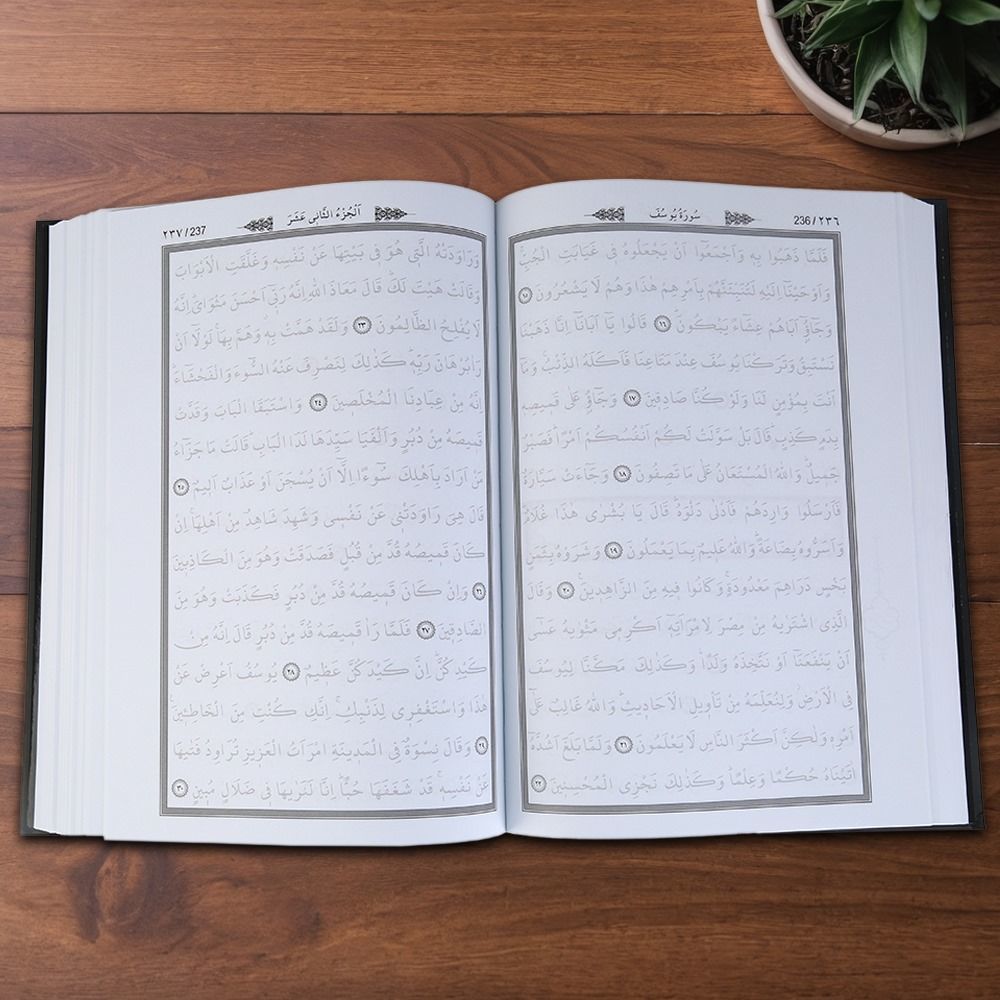 سُورَةُ يُوسُفَ
236 / ٢٣٦
فَلَمَّا ذَهَبُوا بِهِ وَاَجْمَعُٓوا اَنْ يَجْعَلُوهُ ف۪ي غَيَابَتِ الْجُبِّۚ
وَاَوْحَيْنَٓا اِلَيْهِ لَتُنَبِّئَنَّهُمْ بِاَمْرِهِمْ هٰذَا وَهُمْ لَا يَشْعُرُونَ ١٥
وَجَٓاؤُٓ۫ اَبَاهُمْ عِشَٓاءً يَبْكُونَۜ ١٦ قَالُوا يَٓا اَبَانَٓا اِنَّا ذَهَبْنَا
نَسْتَبِقُ وَتَرَكْنَا يُوسُفَ عِنْدَ مَتَاعِنَا فَاَكَلَهُ الذِّئْبُۚ وَمَٓا
اَنْتَ بِمُؤْمِنٍ لَنَا وَلَوْ كُنَّا صَادِق۪ينَ ١٧ وَجَٓاؤُ۫ عَلٰى قَم۪يصِه۪
بِدَمٍ كَذِبٍۜ قَالَ بَلْ سَوَّلَتْ لَكُمْ اَنْفُسُكُمْ اَمْرًاۜ فَصَبْرٌ
جَم۪يلٌۜ وَاللّٰهُ الْمُسْتَعَانُ عَلٰى مَا تَصِفُونَ ١٨ وَجَٓاءَتْ سَيَّارَةٌ
فَاَرْسَلُوا وَارِدَهُمْ فَاَدْلٰى دَلْوَهُۜ قَالَ يَا بُشْرٰى هٰذَا غُلَامٌۜ
وَاَسَرُّوهُ بِضَاعَةًۜ وَاللّٰهُ عَل۪يمٌ بِمَا يَعْمَلُونَ ١٩ وَشَرَوْهُ بِثَمَنٍ
بَخْسٍ دَرَاهِمَ مَعْدُودَةٍۚ وَكَانُوا ف۪يهِ مِنَ الزَّاهِد۪ينَ۟ ٢٠ وَقَالَ
الَّذِي اشْتَرٰيهُ مِنْ مِصْرَ لِامْرَاَتِه۪ٓ اَكْرِم۪ي مَثْوٰيهُ عَسٰٓى
اَنْ يَنْفَعَنَٓا اَوْ نَتَّخِذَهُ وَلَدًاۜ وَكَذٰلِكَ مَكَّنَّا لِيُوسُفَ
فِي الْاَرْضِۘ وَلِنُعَلِّمَهُ مِنْ تَأْو۪يلِ الْاَحَاد۪يثِۜ وَاللّٰهُ غَالِبٌ عَلٰٓى
اَمْرِه۪ وَلٰكِنَّ اَكْثَرَ النَّاسِ لَا يَعْلَمُونَ ٢١ وَلَمَّا بَلَغَ اَشُدَّهُٓ
اٰتَيْنَاهُ حُكْمًا وَعِلْمًاۜ وَكَذٰلِكَ نَجْزِي الْمُحْسِن۪ينَ ٢٢
٢٣٧ / 237
اَلْجُزْءُ الثَّانِي عَشَرَ
وَرَاوَدَتْهُ الَّت۪ي هُوَ ف۪ي بَيْتِهَا عَنْ نَفْسِه۪ وَغَلَّقَتِ الْاَبْوَابَ
وَقَالَتْ هَيْتَ لَكَۜ قَالَ مَعَاذَ اللّٰهِ اِنَّهُ رَبّ۪ٓي اَحْسَنَ مَثْوَايَۜ اِنَّهُ
لَا يُفْلِحُ الظَّالِمُونَ ٢٣ وَلَقَدْ هَمَّتْ بِه۪ وَهَمَّ بِهَاۚ لَوْلَٓا اَنْ
رَاٰ بُرْهَانَ رَبِّه۪ۜ كَذٰلِكَ لِنَصْرِفَ عَنْهُ السُّٓوءَ وَالْفَحْشَٓاءَۜ
اِنَّهُ مِنْ عِبَادِنَا الْمُخْلَص۪ينَ ٢٤ وَاسْتَبَقَا الْبَابَ وَقَدَّتْ
قَم۪يصَهُ مِنْ دُبُرٍ وَاَلْفَيَا سَيِّدَهَا لَدَا الْبَابِۜ قَالَتْ مَا جَزَٓاءُ
مَنْ اَرَادَ بِاَهْلِكَ سُٓوءًا اِلَّٓا اَنْ يُسْجَنَ اَوْ عَذَابٌ اَل۪يمٌ ٢٥
قَالَ هِيَ رَاوَدَتْن۪ي عَنْ نَفْس۪ي وَشَهِدَ شَاهِدٌ مِنْ اَهْلِهَاۚ اِنْ
كَانَ قَم۪يصُهُ قُدَّ مِنْ قُبُلٍ فَصَدَقَتْ وَهُوَ مِنَ الْكَاذِب۪ينَ
٢٦ وَاِنْ كَانَ قَم۪يصُهُ قُدَّ مِنْ دُبُرٍ فَكَذَبَتْ وَهُوَ مِنَ
الصَّادِق۪ينَ ٢٧ فَلَمَّا رَاٰ قَم۪يصَهُ قُدَّ مِنْ دُبُرٍ قَالَ اِنَّهُ مِنْ
كَيْدِكُنَّۜ اِنَّ كَيْدَكُنَّ عَظ۪يمٌ ٢٨ يُوسُفُ اَعْرِضْ عَنْ
هٰذَا وَاسْتَغْفِر۪ي لِذَنْبِكِۚ اِنَّكِ كُنْتِ مِنَ الْخَاطِـ۪ٔينَ۟
٢٩ وَقَالَ نِسْوَةٌ فِي الْمَد۪ينَةِ امْرَاَتُ الْعَز۪يزِ تُرَاوِدُ فَتٰيهَا
عَنْ نَفْسِه۪ۚ قَدْ شَغَفَهَا حُبًّاۜ اِنَّا لَنَرٰيهَا ف۪ي ضَلَالٍ مُب۪ينٍ ٣٠